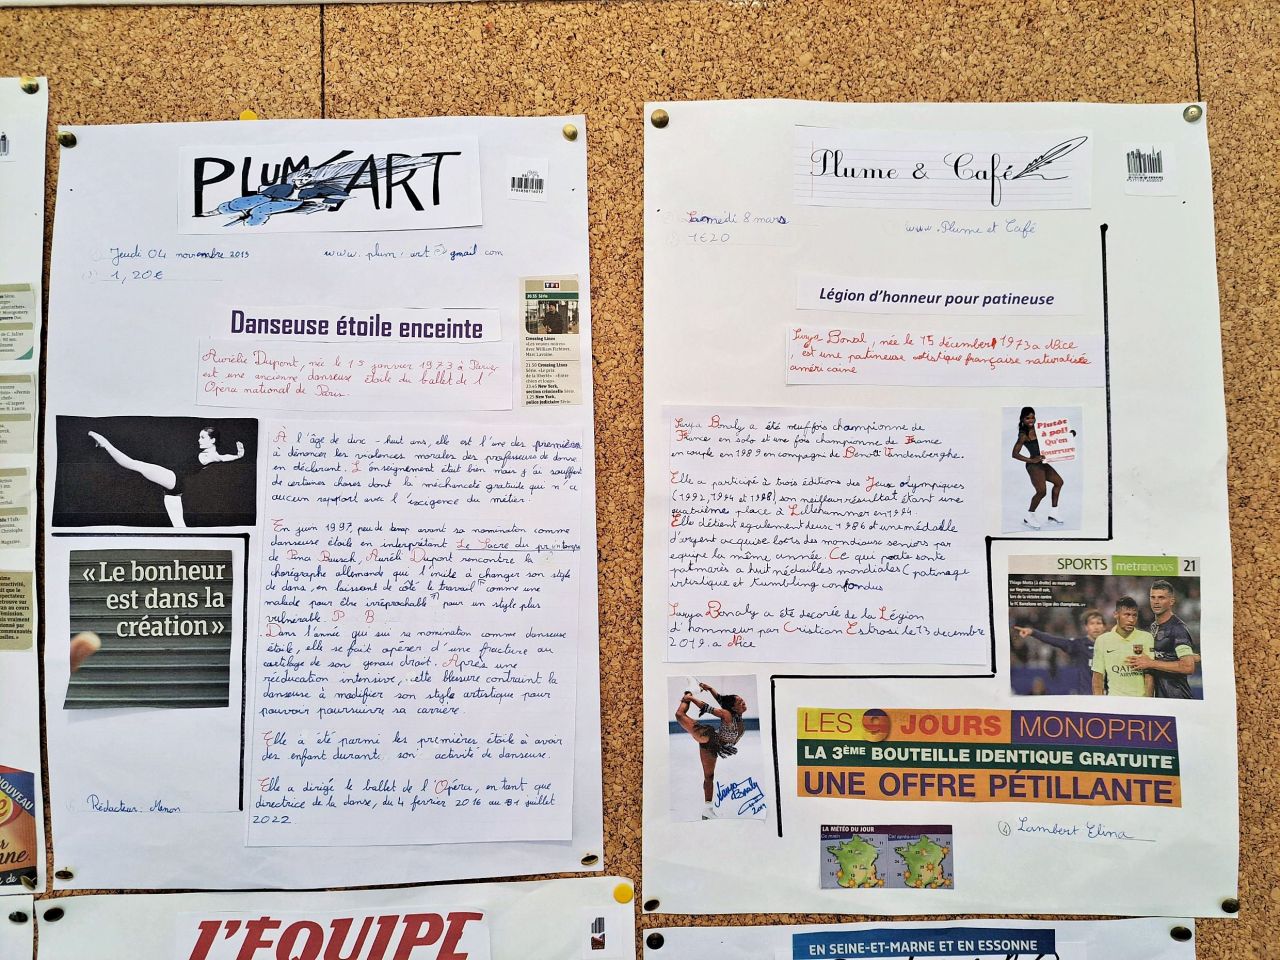 PLUM'ART
Jeudi 04 novembre 2015
www.plum'art@gmail com
1,20€
Danseuse étoile enceinte
Aurélie Dupont, née le 15 janvier 1973 à Paris
est une ancienne danseuse étoile du ballet de l'
Opéra national de Paris.
TF1
20.55 Série
Crossing Lines
Avec William Fichtner,
Marc Lavoine.
21.50 Crossing Lines
Série. «Le prix
de la liberté» «Entre
chien et loup»
23.45 New York,
section criminelle Série.
1.25 New York,
police judiciaire Série.
À l'âge de dix-huit ans, elle est l'une des premières
à dénoncer les violences morales des professeurs de danse
en déclarant. L'enseignement était bien mais j'ai souffert
de certaines choses dont la méchanceté gratuite qui n'a
aucun rapport avec l'exigence du métier.
En juin 1997, peu de temp avant sa nomination comme
danseuse étoile en interprétant Le Sacre du printemps
de Pina Bausch, Aurélie Dupont rencontre la
chorégraphe allemande, qui l'invite à changer son style
de dans, en laissent de côté le travail "comme une
malade pour être irréprochable" pour un style plus
vulnerable. P B
Dans l'année qui sui sa nomination comme danseuse
étoile, elle se fait opérer d'une fracture au
cartilage de son genou droit. Après une
rééducation intensive, cette blessure contraint la
danseuse à modifier son style artistique pour
pouvoir poursuivre sa carrière.
Elle à été parmi les premières étoile à avoir
des enfant durant son activité de danseuse.
Elle a dirigé le ballet de l'Opéra, en tant que
directrice de la danse, du 4 février 2016 au 31 juillet
2022.
«Le bonheur
est dans la
création»
Rédacteur: Manon
Plume & Café
Samedi 8 mars
www.Plume et Café
1€20
Légion d'honneur pour patineuse
Surya Bonal, née le 15 décembre 1973 a Nice
, est une patineuse artistique française naturalisée
américaine
Surya Bonaly a été neuf fois championne de
France en solo et une fois championne de France
en couple en 1989 en compagni de Benoît Vandenberghe.
Elle a participé à trois éditions des Jeux olympiques
(1992, 1994 et 1998) son meilleur résultat étant une
quatrième place à Lillehammer en 1994.
Elle détient egalement deux 1986 et une médaille
d'argent acquise lors des mondiaux seniors par
equipe la même année. Ce qui porte son
palmarès a huit médailles mondiales (patinage
artistique et tumbling confondus
Surya Bonaly a été decorée de la Légion
d'honneur par Cristian Estrosi le 13 decembre
2019. a Nice
Plutôt
à poil!
Qu'en
fourrure
SPORTS metronews 21
Thiago Motta (à droite) au marquage
sur Neymar, mardi soir,
lors de la victoire contre
le FC Barcelone en Ligue des champions.
QATAR
AIRWAYS
LES 9 JOURS MONOPRIX
LA 3ÈME BOUTEILLE IDENTIQUE GRATUITE
UNE OFFRE PÉTILLANTE
LA MÉTÉO DU JOUR
Ce matin
Cet après-midi
④ Lambert Elina
NOUVEAU
L'ÉQUIPE
EN SEINE-ET-MARNE ET EN ESSONNE